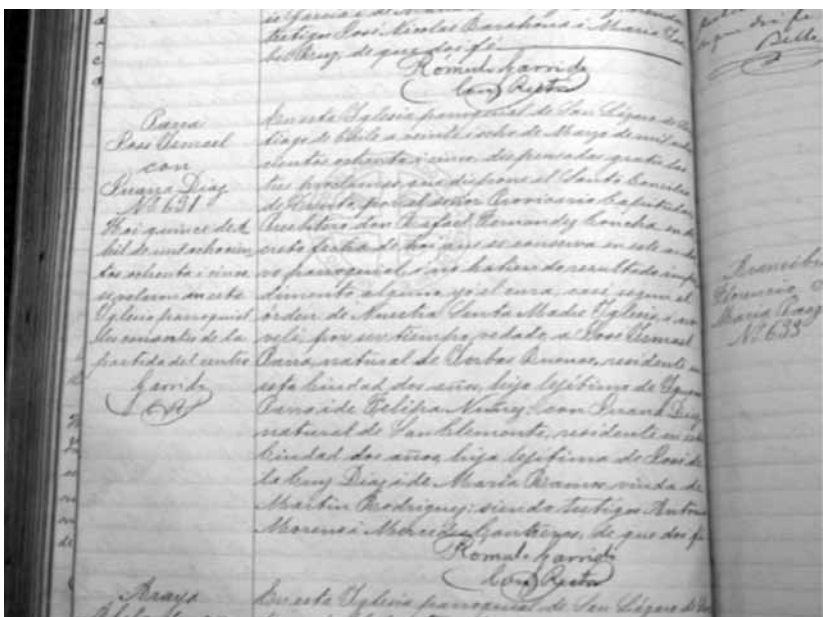 testigos José Nicolas Barahona i Maria
Cruz, de que doi fé
Rómulo Garrido
Cura Rector
Parra
José Ismael
con
Juana Diaz
Nº 631
Hoi quince de A
bril de mil ochocien
tos ochenta i cinco
se velaron en esta
Iglesia parroquial
los consortes de la
partida del centro
Garrido
CR
En esta Iglesia parroquial de San Lázaro de San
tiago de Chile a veintiocho de Marzo de mil ocho
cientos ochenta i cinco, dispensadas gratis las
tres proclamas que dispone el Santo Concilio
de Trento por el señor Provicario Capitular
Presbítero don Rafael Fernandez Concha en de
creto fecha de hoi que se conserva en este archi
vo parroquial, i no habiendo resultado impe
dimento alguno yo el cura, casé segun el
órden de Nuestra Santa Madre Iglesia i no
velé, por ser tiempo vedado, a José Ismael
Parra, natural de Yerbas Buenas, residente en
esta Ciudad dos años, hijo lejítimo de
Parra i de Felipa Nuñez: con Juana Diaz
natural de San Clemente, residente en esta
Ciudad dos años, hija lejítima de José de
la Cruz Diaz i de Maria Ramos, viuda de
Martin Rodriguez: siendo testigos Antonio
Moreno i Mercedes Contreras, de que doi fé
Rómulo Garrido
Cura Rector
Araya
En esta Iglesia parroquial de San Lázaro de
que doi fé
Florencio
Maria
Nº 633